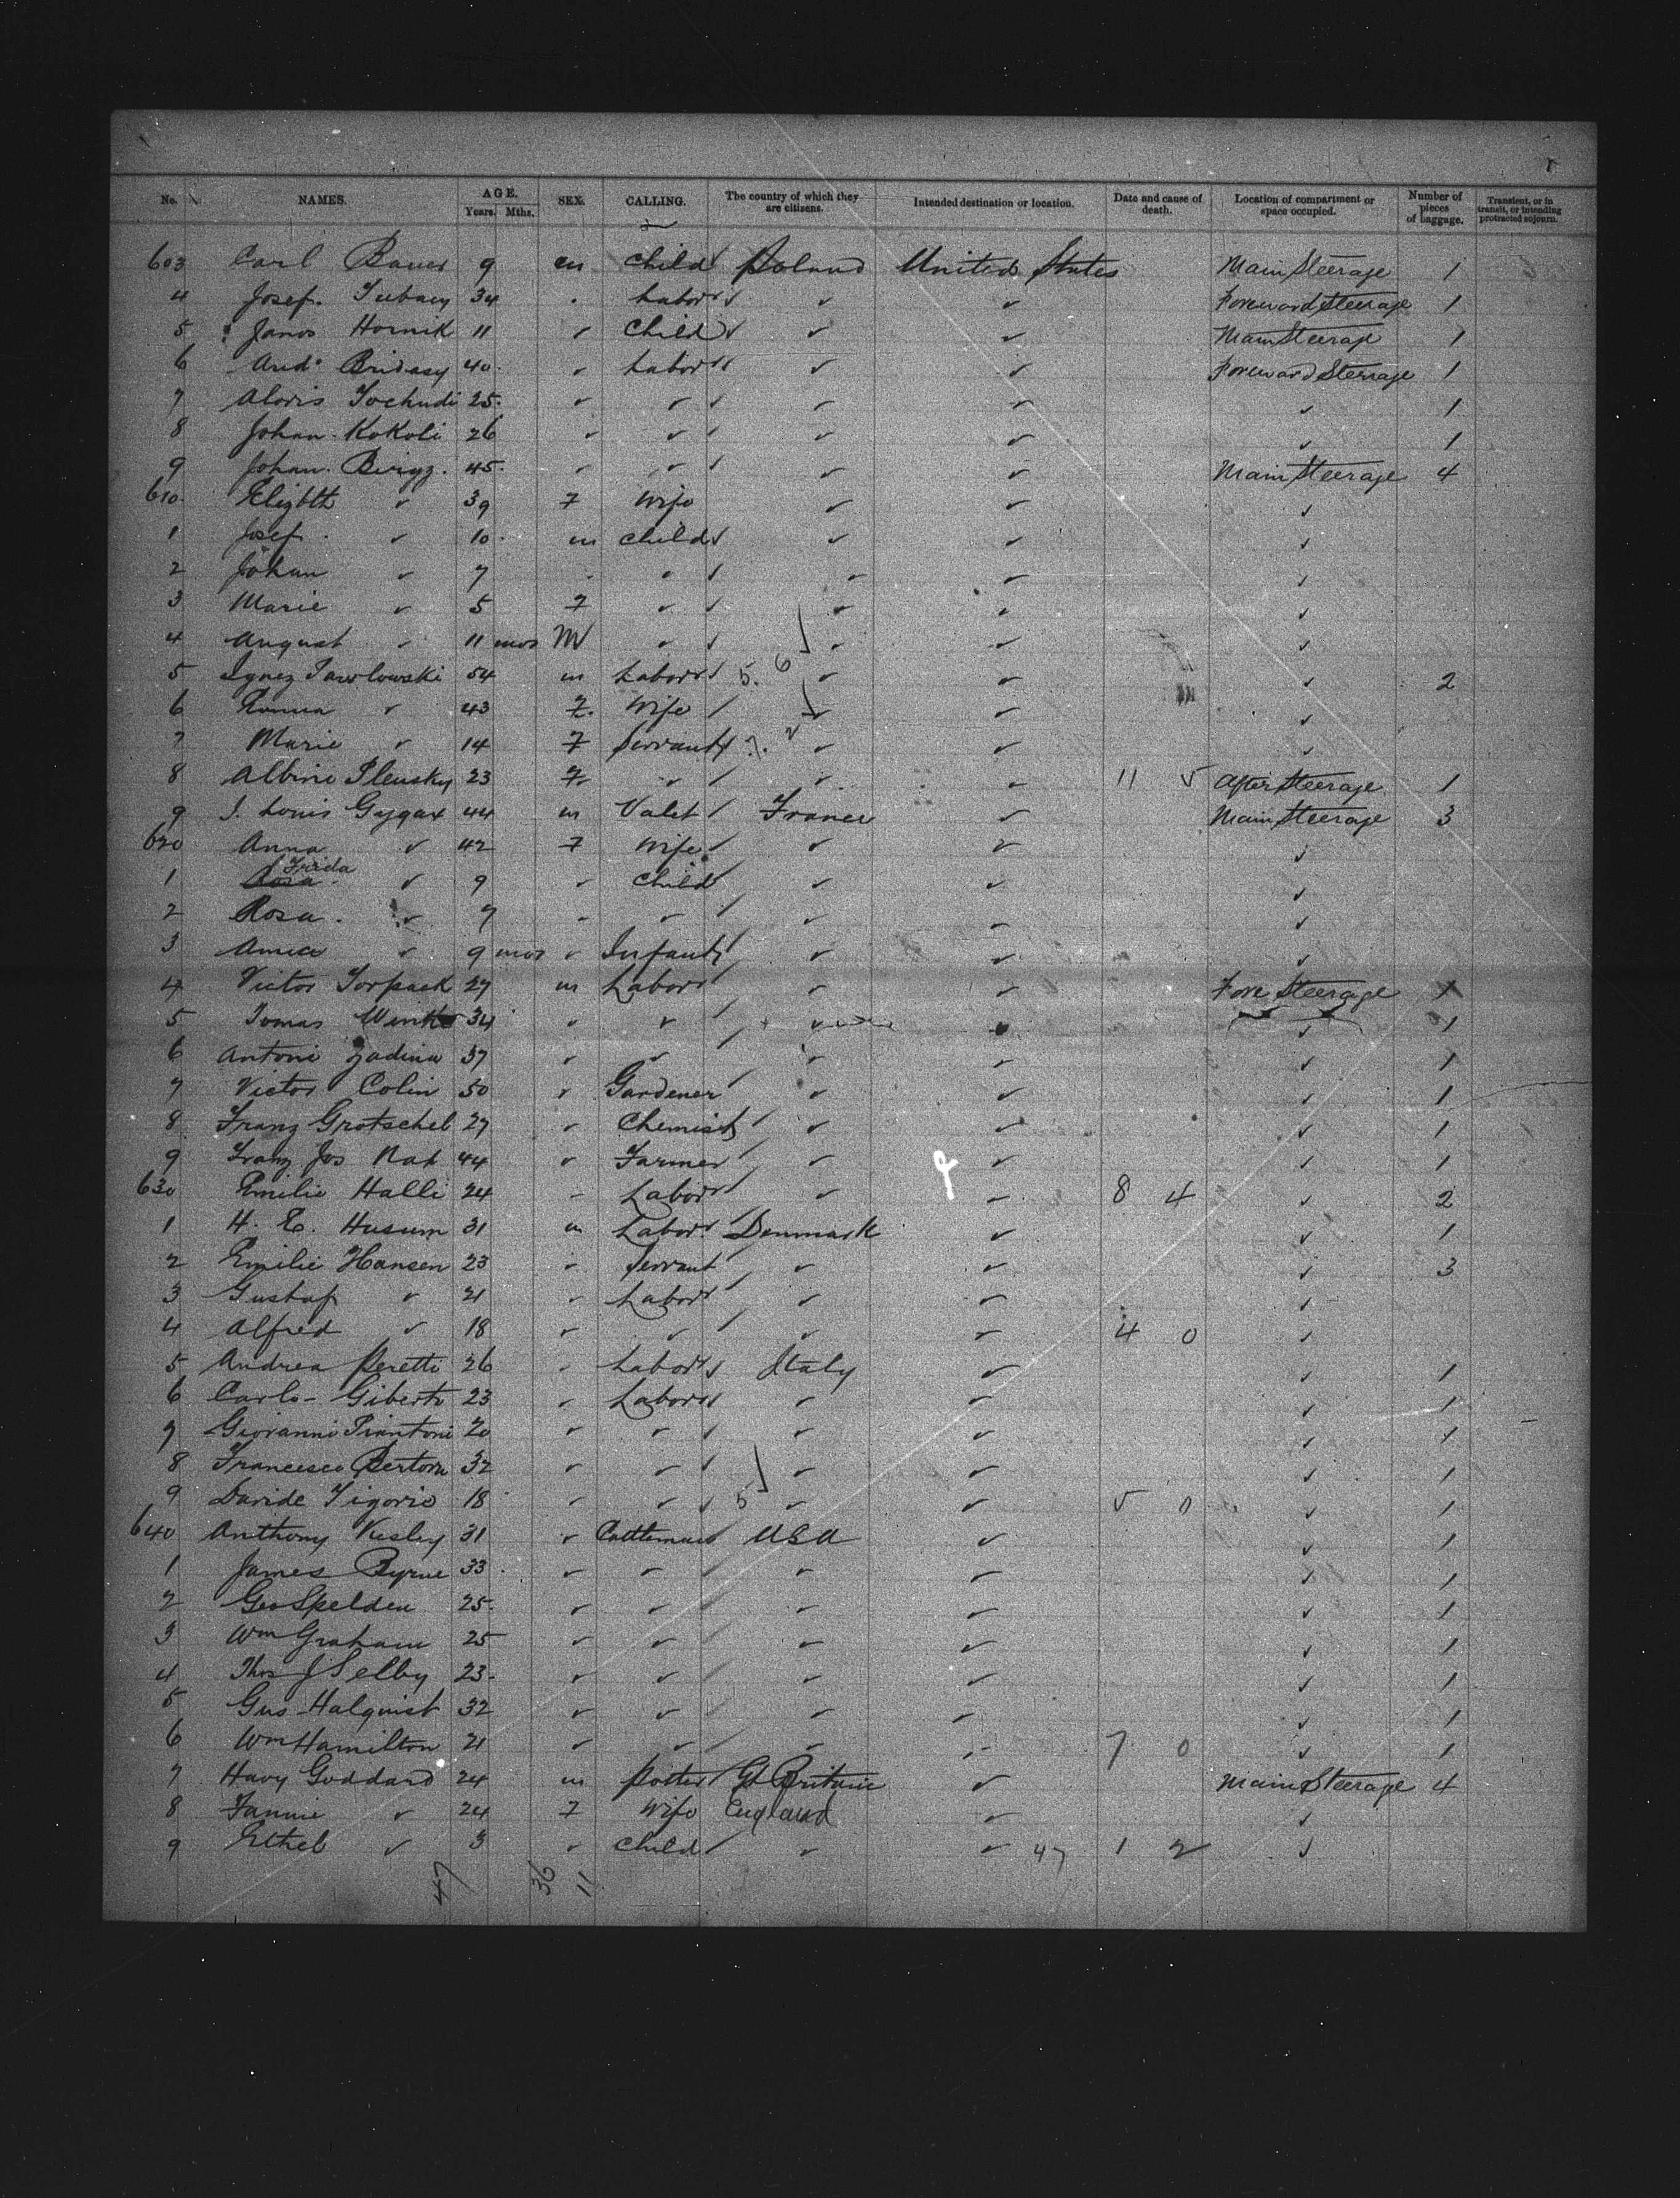 No. NAMES. AGE. Years. Mths. SEX. CALLING. The country of which they are citizens. Intended destination or location. Date and cause of death. Location of compartment or space occupied. Number of pieces of baggage. Transient, or in transit, or intending protracted sojourn.
603 Carl Bauer 9 m Child Poland United States Main Steerage 1
4 Josef. 34 Labor ✓ ✓ Foreward Steerage 1
5 Janos Hornik 11 ✓ Child ✓ ✓ Main Steerage 1
6 And° Bridasy 40 ✓ Labor ✓ ✓ Foreward Steerage 1
7 Alovis Tochudi 25 ✓ ✓ ✓ ✓ ✓ 1
8 Johan Kokoli 26 ✓ ✓ ✓ ✓ ✓ 1
9 Johan. Birigz. 45 ✓ ✓ ✓ ✓ Main Steerage 4
610 Elizbth ✓ 39 F Wife ✓ ✓ ✓
1 Josef ✓ 10 m Child ✓ ✓ ✓
2 Johan ✓ 7 ✓ ✓ ✓ ✓
3 Marie ✓ 5 F ✓ ✓ ✓ ✓
4 August ✓ 11 mos M ✓ ✓ ✓ ✓
5 Ignez Pawlowski 54 m Labor 5. 6 ✓ ✓ ✓ 2
6 Emma ✓ 43 F. Wife ✓ ✓ ✓
7 Marie ✓ 14 F Servant 7. 2 ✓ ✓ ✓
8 Albine Plensky 23 F ✓ ✓ ✓ 11 5 After Steerage 1
9 J. Louis Gygax 44 m Valet France ✓ Main Steerage 3
620 Anna ✓ 42 F Wife ✓ ✓ ✓
Frida
1 Rosa ✓ 9 ✓ Child ✓ ✓ ✓
2 Rosa. ✓ 7 ✓ ✓ ✓ ✓ ✓
3 Amea ✓ 9 mos ✓ Infant ✓ ✓ ✓
4 Victor Torpack 27 m Labor ✓ ✓ Fore Steerage 1
5 Tomas 34 ✓ ✓ ✓ ✓ ✓ 1
6 Antoni Zadina 37 ✓ ✓ ✓ ✓ ✓ 1
7 Victor Colin 50 ✓ Gardener ✓ ✓ ✓ 1
8 Franz Grotschel 27 ✓ Chemist ✓ ✓ ✓ 1
9 Franz Jos Nak 44 ✓ Farmer ✓ ✓ ✓ 1
630 Emilie Halli 24 ✓ Labor ✓ ✓ 8 4 ✓ 2
1 H. E. Husum 31 m Labor Denmark ✓ ✓ 1
2 Emilie Hansen 23 ✓ Servant ✓ ✓ ✓ 3
3 Gustaf ✓ 21 ✓ Labor ✓ ✓ ✓
4 Alfred ✓ 18 ✓ ✓ ✓ ✓ 4 0 ✓
5 Andrea Peretti 26 ✓ Labor Italy ✓ ✓ 1
6 Carlo Giberto 23 ✓ Labor ✓ ✓ ✓ 1
7 Giovanni Piantoni 20 ✓ ✓ ✓ ✓ ✓ 1
8 Francesco Bertora 32 ✓ ✓ ✓ ✓ ✓ 1
9 Davide Tigorio 18 ✓ ✓ 5 ✓ ✓ 5 0 ✓ 1
640 Anthony Vesley 31 ✓ Cattleman USA ✓ ✓ 1
1 James Byrne 33 ✓ ✓ ✓ ✓ ✓ 1
2 Geo Spelden 25 ✓ ✓ ✓ ✓ ✓ 1
3 Wm Graham 25 ✓ ✓ ✓ ✓ ✓ 1
4 Thos J Selby 23 ✓ ✓ ✓ ✓ ✓ 1
5 Gus Halquist 32 ✓ ✓ ✓ ✓ ✓ 1
6 Wm Hamilton 21 ✓ ✓ ✓ ✓ 7 0 ✓ 1
7 Havy Goddard 24 m Potter Gt Britain ✓ Main Steerage 4
8 Fannie ✓ 24 F Wife England ✓ ✓
9 Ethel ✓ 3 ✓ Child ✓ ✓ 47 1 2 ✓
47 36 11